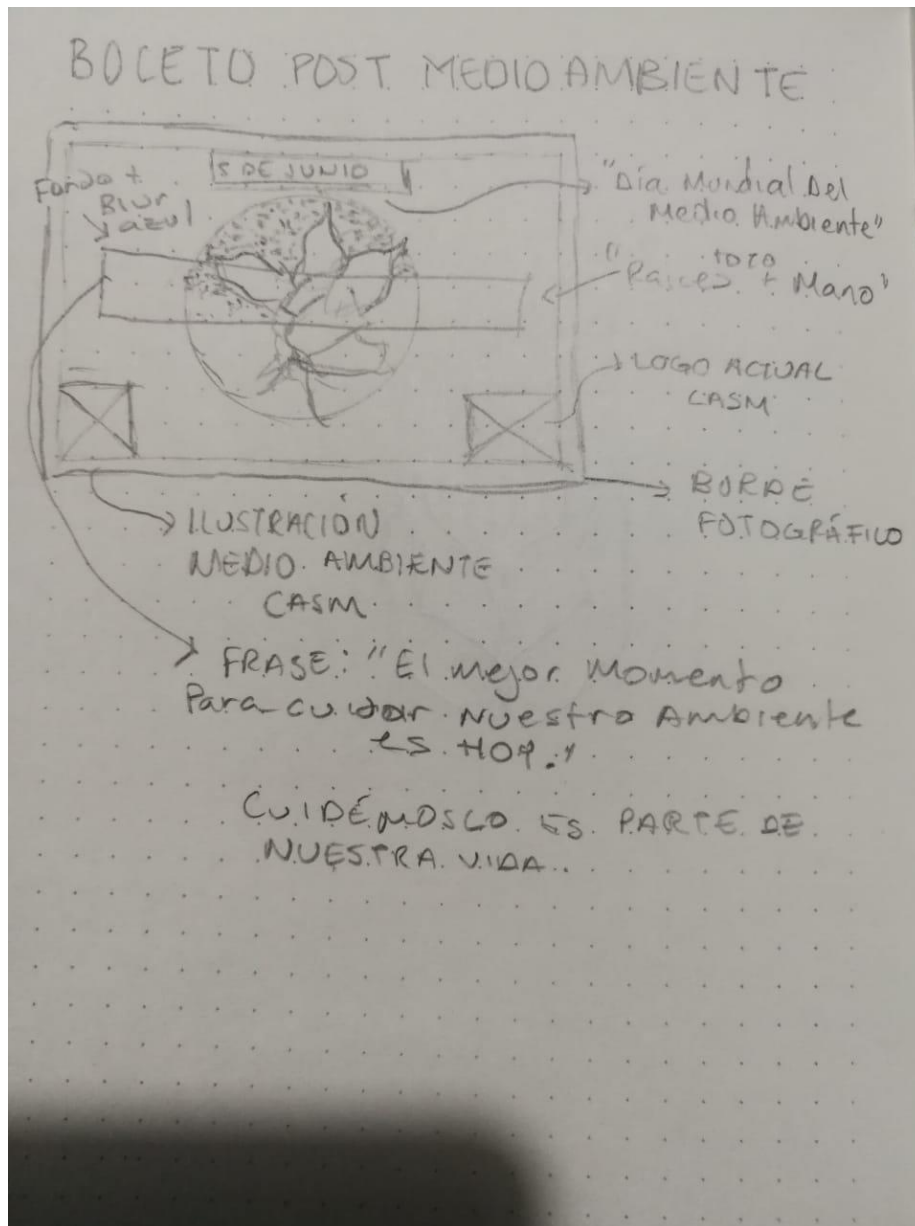 BOCETO POST MEDIO AMBIENTE
5 DE JUNIO
Fondo +
Blur
azul
"Día Mundial Del
Medio Ambiente"
"Raíces + Mano"
LOGO ACTUAL
CASM
BORDE
FOTOGRÁFICO
ILUSTRACIÓN
MEDIO AMBIENTE
CASM
FRASE: "El mejor Momento
Para cuidar Nuestro Ambiente
es HOY."
CUIDÉMOSLO ES PARTE DE
NUESTRA VIDA..